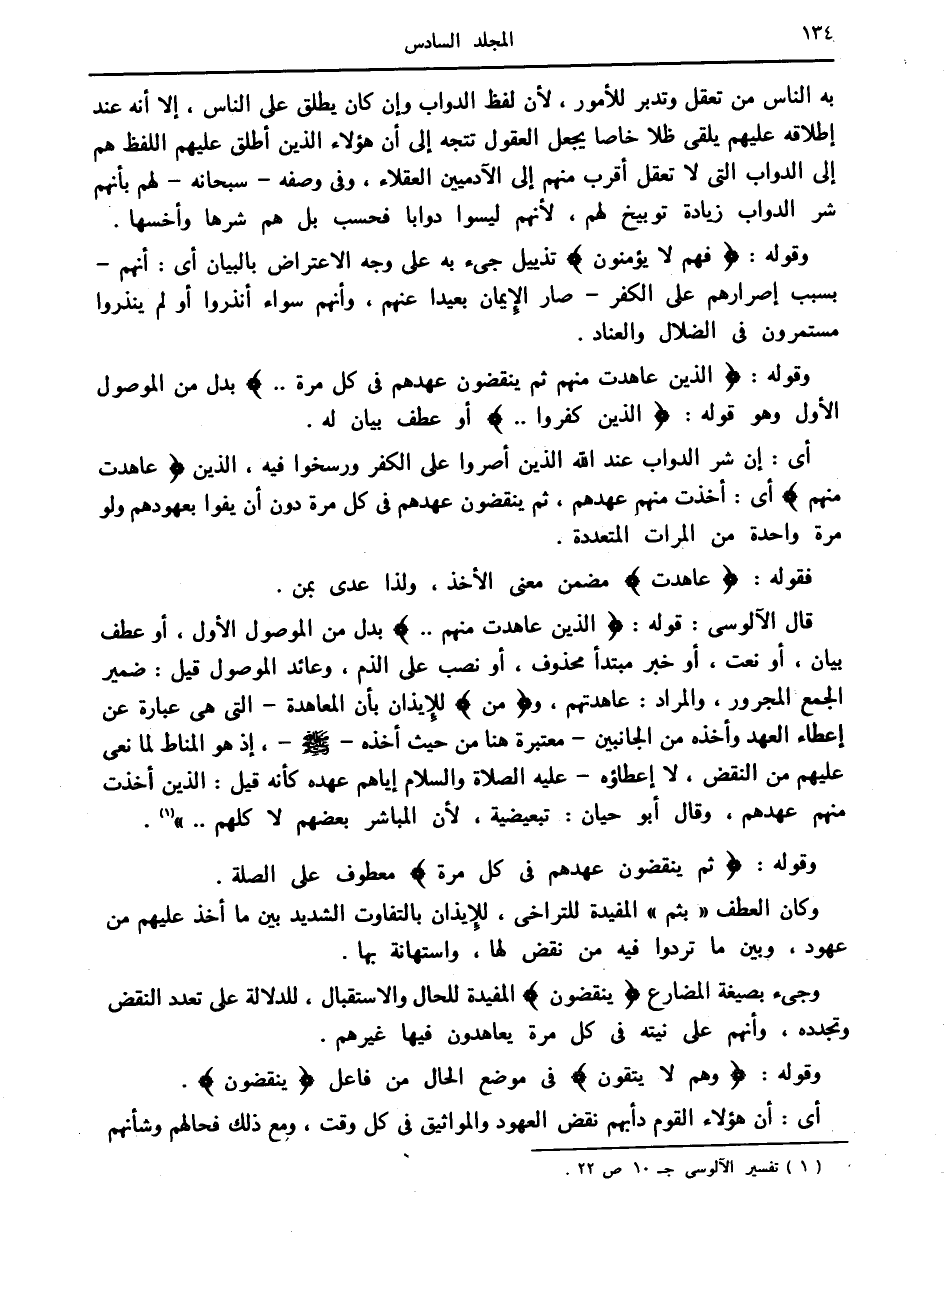 ١٣٤
المجلد السادس
به الناس من تعقل وتدبر للأمور ، لأن لفظ الدواب وإن كان يطلق على الناس ، إلا أنه عند
إطلاقه عليهم يلقى ظلا خاصا يجعل العقول تتجه إلى أن هؤلاء الذين أطلق عليهم اللفظ هم
إلى الدواب التى لا تعقل أقرب منهم إلى الآدميين العقلاء ، وفى وصفه - سبحانه - لهم بأنهم
شر الدواب زيادة توبيخ لهم ، لأنهم ليسوا دوابا فحسب بل هم شرها وأخسها .
وقوله : ﴿ فهم لا يؤمنون ﴾ تذييل جىء به على وجه الاعتراض بالبيان أى : أنهم -
بسبب إصرارهم على الكفر - صار الإيمان بعيدا عنهم ، وأنهم سواء أنذروا أو لم ينذروا
مستمرون فى الضلال والعناد .
وقوله : ﴿ الذين عاهدت منهم ثم ينقضون عهدهم فى كل مرة .. ﴾ بدل من الموصول
الأول وهو قوله : ﴿ الذين كفروا .. ﴾ أو عطف بيان له .
أى : إن شر الدواب عند الله الذين أصروا على الكفر ورسخوا فيه ، الذين ﴿ عاهدت
منهم ﴾ أى : أخذت منهم عهدهم ، ثم ينقضون عهدهم فى كل مرة دون أن يفوا بعهودهم ولو
مرة واحدة من المرات المتعددة .
فقوله : ﴿ عاهدت ﴾ مضمن معنى الأخذ ، ولذا عدى بمن .
قال الآلوسى : قوله : ﴿ الذين عاهدت منهم .. ﴾ بدل من الموصول الأول ، أو عطف
بيان ، أو نعت ، أو خبر مبتدأ محذوف ، أو نصب على الذم ، وعائد الموصول قيل : ضمير
الجمع المجرور ، والمراد : عاهدتهم ، و﴿ من ﴾ للإيذان بأن المعاهدة - التى هى عبارة عن
إعطاء العهد وأخذه من الجانبين - معتبرة هنا من حيث أخذه - ﷺ - ، إذ هو المناط لما نعى
عليهم من النقض ، لا إعطاؤه - عليه الصلاة والسلام إياهم عهده كأنه قيل : الذين أخذت
منهم عهدهم ، وقال أبو حيان : تبعيضية ، لأن المباشر بعضهم لا كلهم .. »(١) .
وقوله : ﴿ ثم ينقضون عهدهم فى كل مرة ﴾ معطوف على الصلة .
وكان العطف « بثم » المفيدة للتراخى ، للإيذان بالتفاوت الشديد بين ما أخذ عليهم من
عهود ، وبين ما تردوا فيه من نقض لها ، واستهانة بها .
وجىء بصيغة المضارع ﴿ ينقضون ﴾ المفيدة للحال والاستقبال ، للدلالة على تعدد النقض
وتجدده ، وأنهم على نيته فى كل مرة يعاهدون فيها غيرهم .
وقوله : ﴿ وهم لا يتقون ﴾ فى موضع الحال من فاعل ﴿ ينقضون ﴾ .
أى : أن هؤلاء القوم دأبهم نقض العهود والمواثيق فى كل وقت ، ومع ذلك فحالهم وشأنهم
( ١ ) تفسير الآلوسى جـ ١٠ ص ٢٢ .